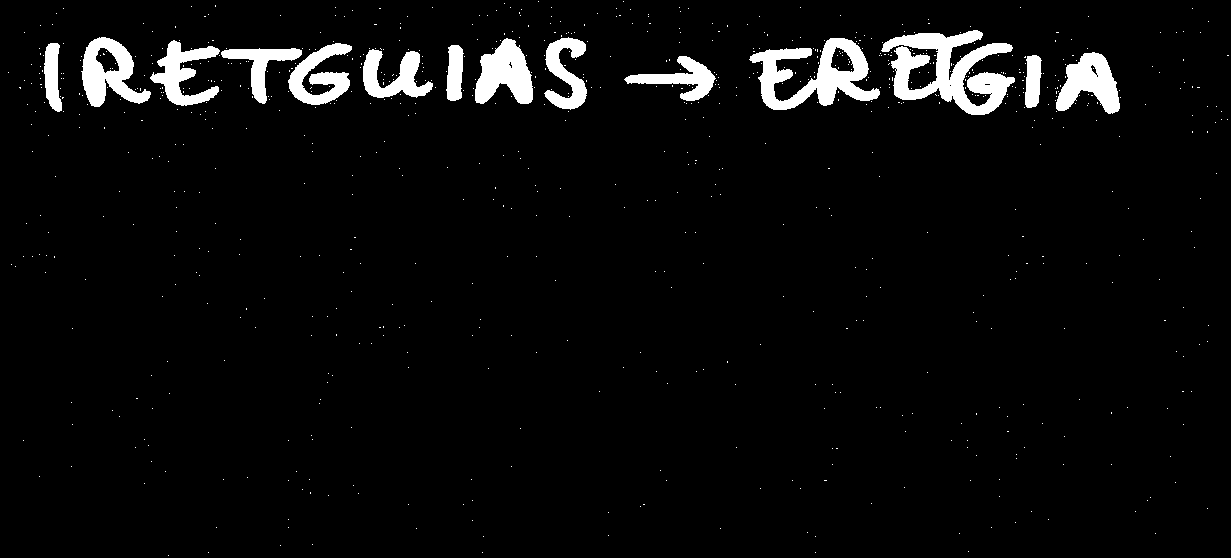 IRETGUIAS → ERETGIA